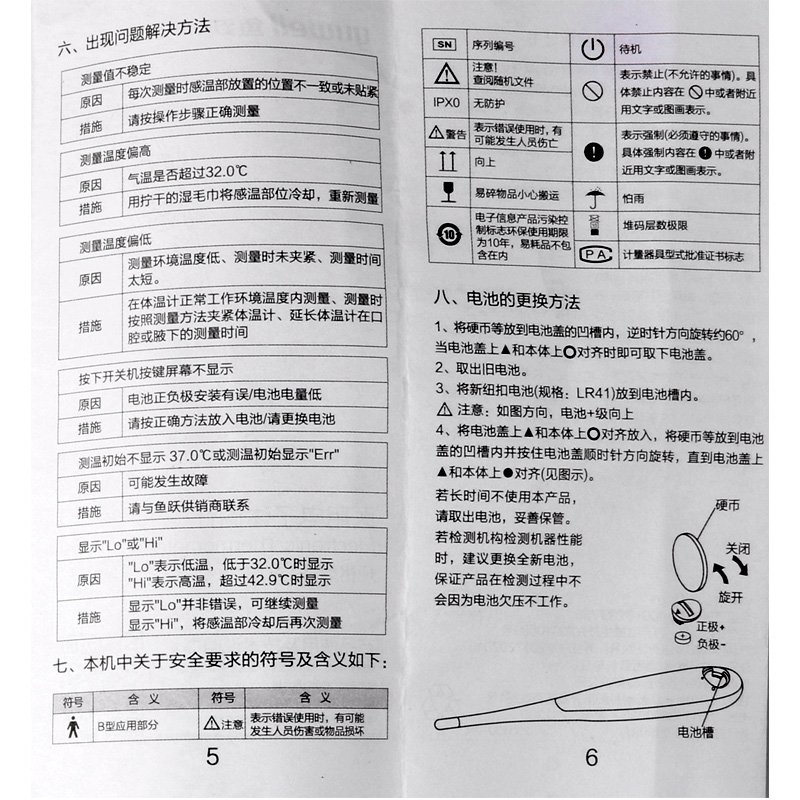 六、出现问题解决方法
测量值不稳定
原因 每次测量时感温部放置的位置不一致或未贴紧
措施 请按操作步骤正确测量
测量温度偏高
原因 气温是否超过32.0℃
措施 用拧干的湿毛巾将感温部位冷却，重新测量
测量温度偏低
原因 测量环境温度低、测量时未夹紧、测量时间
太短。
措施 在体温计正常工作环境温度内测量、测量时
按照测量方法夹紧体温计、延长体温计在口
腔或腋下的测量时间
按下开关机按键屏幕不显示
原因 电池正负极安装有误/电池电量低
措施 请按正确方法放入电池/请更换电池
测温初始不显示 37.0℃或测温初始显示"Err"
原因 可能发生故障
措施 请与鱼跃供销商联系
显示"Lo"或"Hi"
原因 "Lo"表示低温，低于32.0℃时显示
"Hi"表示高温，超过42.9℃时显示
措施 显示"Lo"并非错误，可继续测量
显示"Hi"，将感温部冷却后再次测量
七、本机中关于安全要求的符号及含义如下：
符号 含 义 符号 含 义
B型应用部分 注意 表示错误使用时，有可能
发生人员伤害或物品损坏
5
SN 序列编号 待机
注意！
查阅随机文件
表示禁止(不允许的事情)。具
体禁止内容在 中或者附近
用文字或图画表示。
IPX0 无防护
警告 表示错误使用时，有
可能发生人员伤亡
表示强制(必须遵守的事情)。
具体强制内容在 中或者附
近用文字或图画表示。
向上
易碎物品小心搬运 怕雨
10 电子信息产品污染控
制标志环保使用期限
为10年，易耗品不包
含在内
堆码层数极限
CPA 计量器具型式批准证书标志
八、电池的更换方法
1、将硬币等放到电池盖的凹槽内，逆时针方向旋转约60°，
当电池盖上▲和本体上○对齐时即可取下电池盖。
2、取出旧电池。
3、将新纽扣电池(规格：LR41)放到电池槽内。
⚠ 注意：如图方向，电池+级向上
4、将电池盖上▲和本体上○对齐放入，将硬币等放到电池
盖的凹槽内并按住电池盖顺时针方向旋转，直到电池盖上
▲和本体上●对齐(见图示)。
若长时间不使用本产品，
请取出电池，妥善保管。
若检测机构检测机器性能
时，建议更换全新电池，
保证产品在检测过程中不
会因为电池欠压不工作。
硬币
关闭
旋开
正极+
负极-
电池槽
6